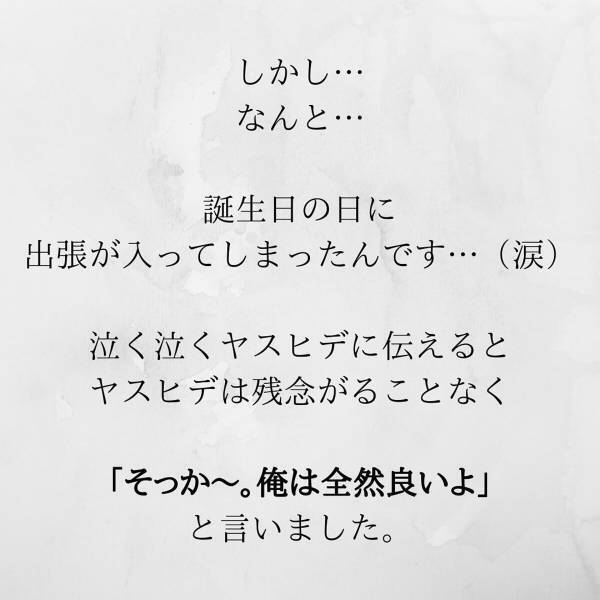 しかし…
なんと…
誕生日の日に
出張が入ってしまったんです…（涙）
泣く泣くヤスヒデに伝えると
ヤスヒデは残念がることなく
「そっか～。俺は全然良いよ」
と言いました。